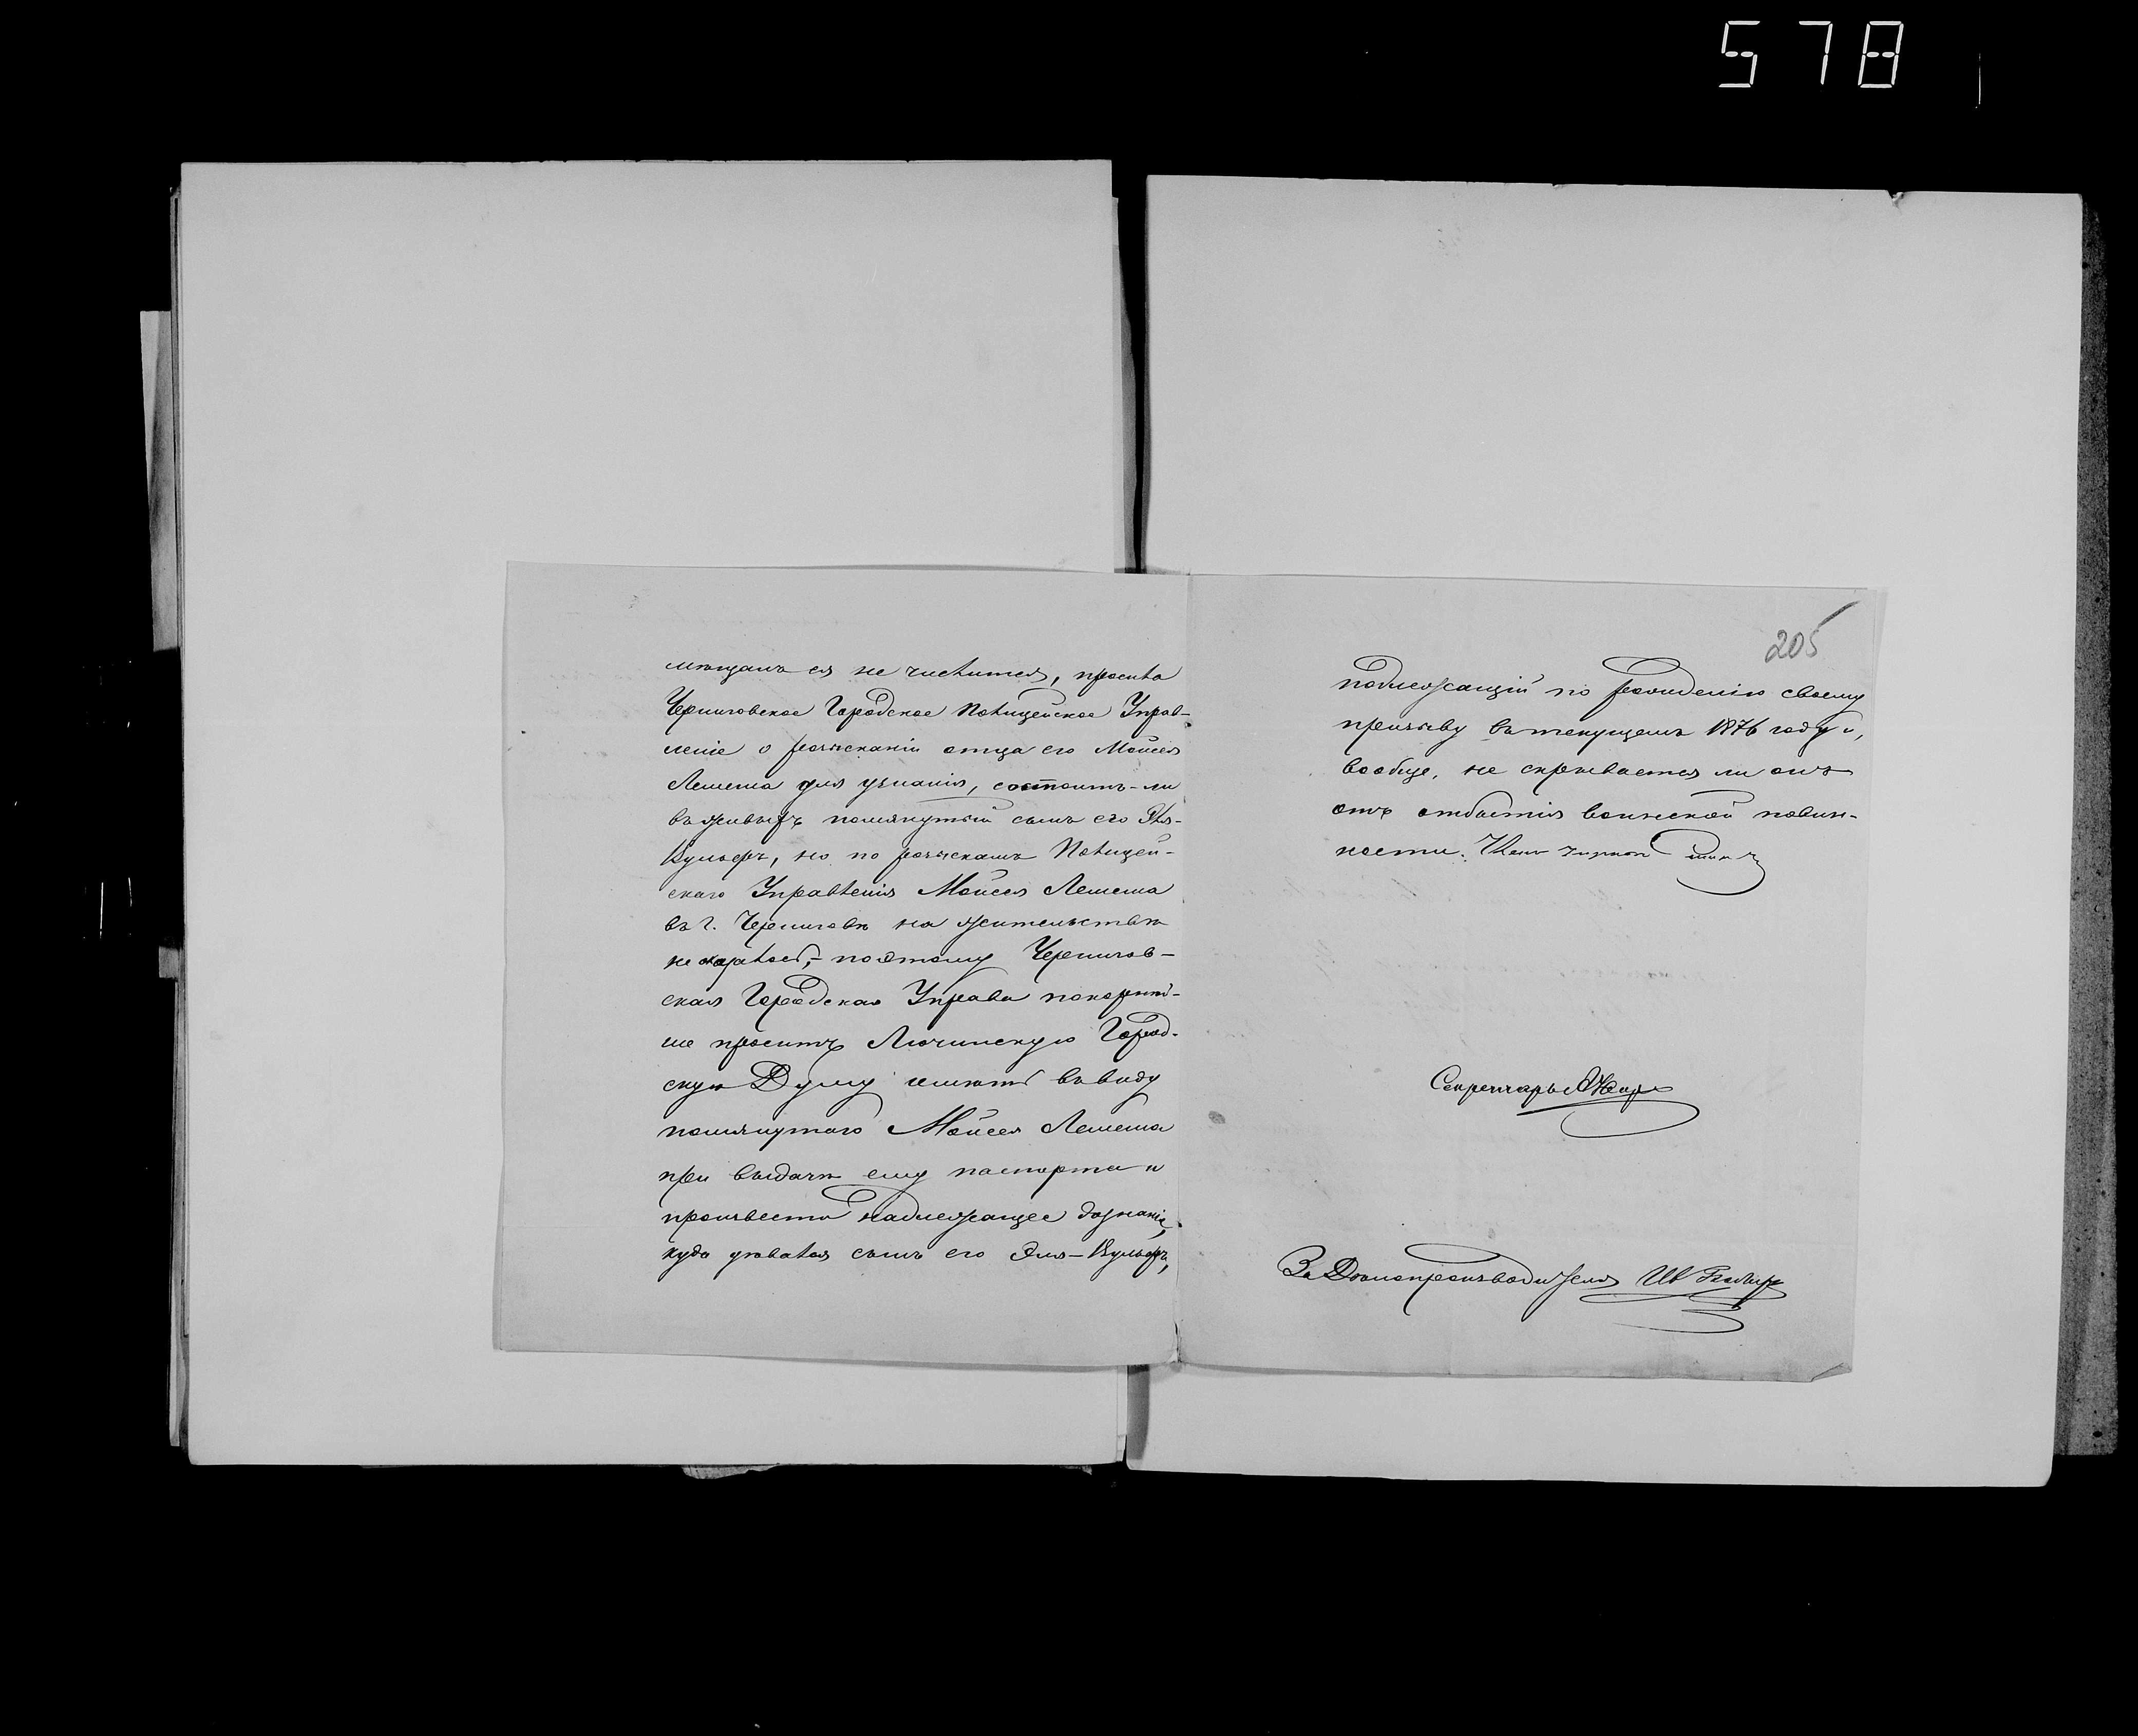 578
мѣщанъ ея не числится, просила
Черниговское Городское Полицейское Управ-
леніе о розысканіи отца его Мойсея
Лемеша для узнанія, состоитъ-ли
въ живыхъ помянутый сынъ его Эля-
Вульфъ, но по розыскамъ Полицей-
скаго Управленія Мойсея Лемеша
въ г. Черниговѣ на жительствѣ
не оказалось, - поэтому Чернигов-
ская Городская Управа покорнѣй-
ше проситъ Лючинскую Город-
скую Думу имѣть въ виду
помянутаго Мойсея Лемеша
при выдачѣ ему паспорта и
произвести надлежащее дознаніе,
куда дѣвался сынъ его Эля-Вульфъ,
205
подлежащій по рожденію своему
призыву въ текущемъ 1876 году и,
вообще, не скрывается ли онъ
отъ отбытія воинской повин-
ности. Членъ
Секретарь
За Дѣлопроизводителя Ив